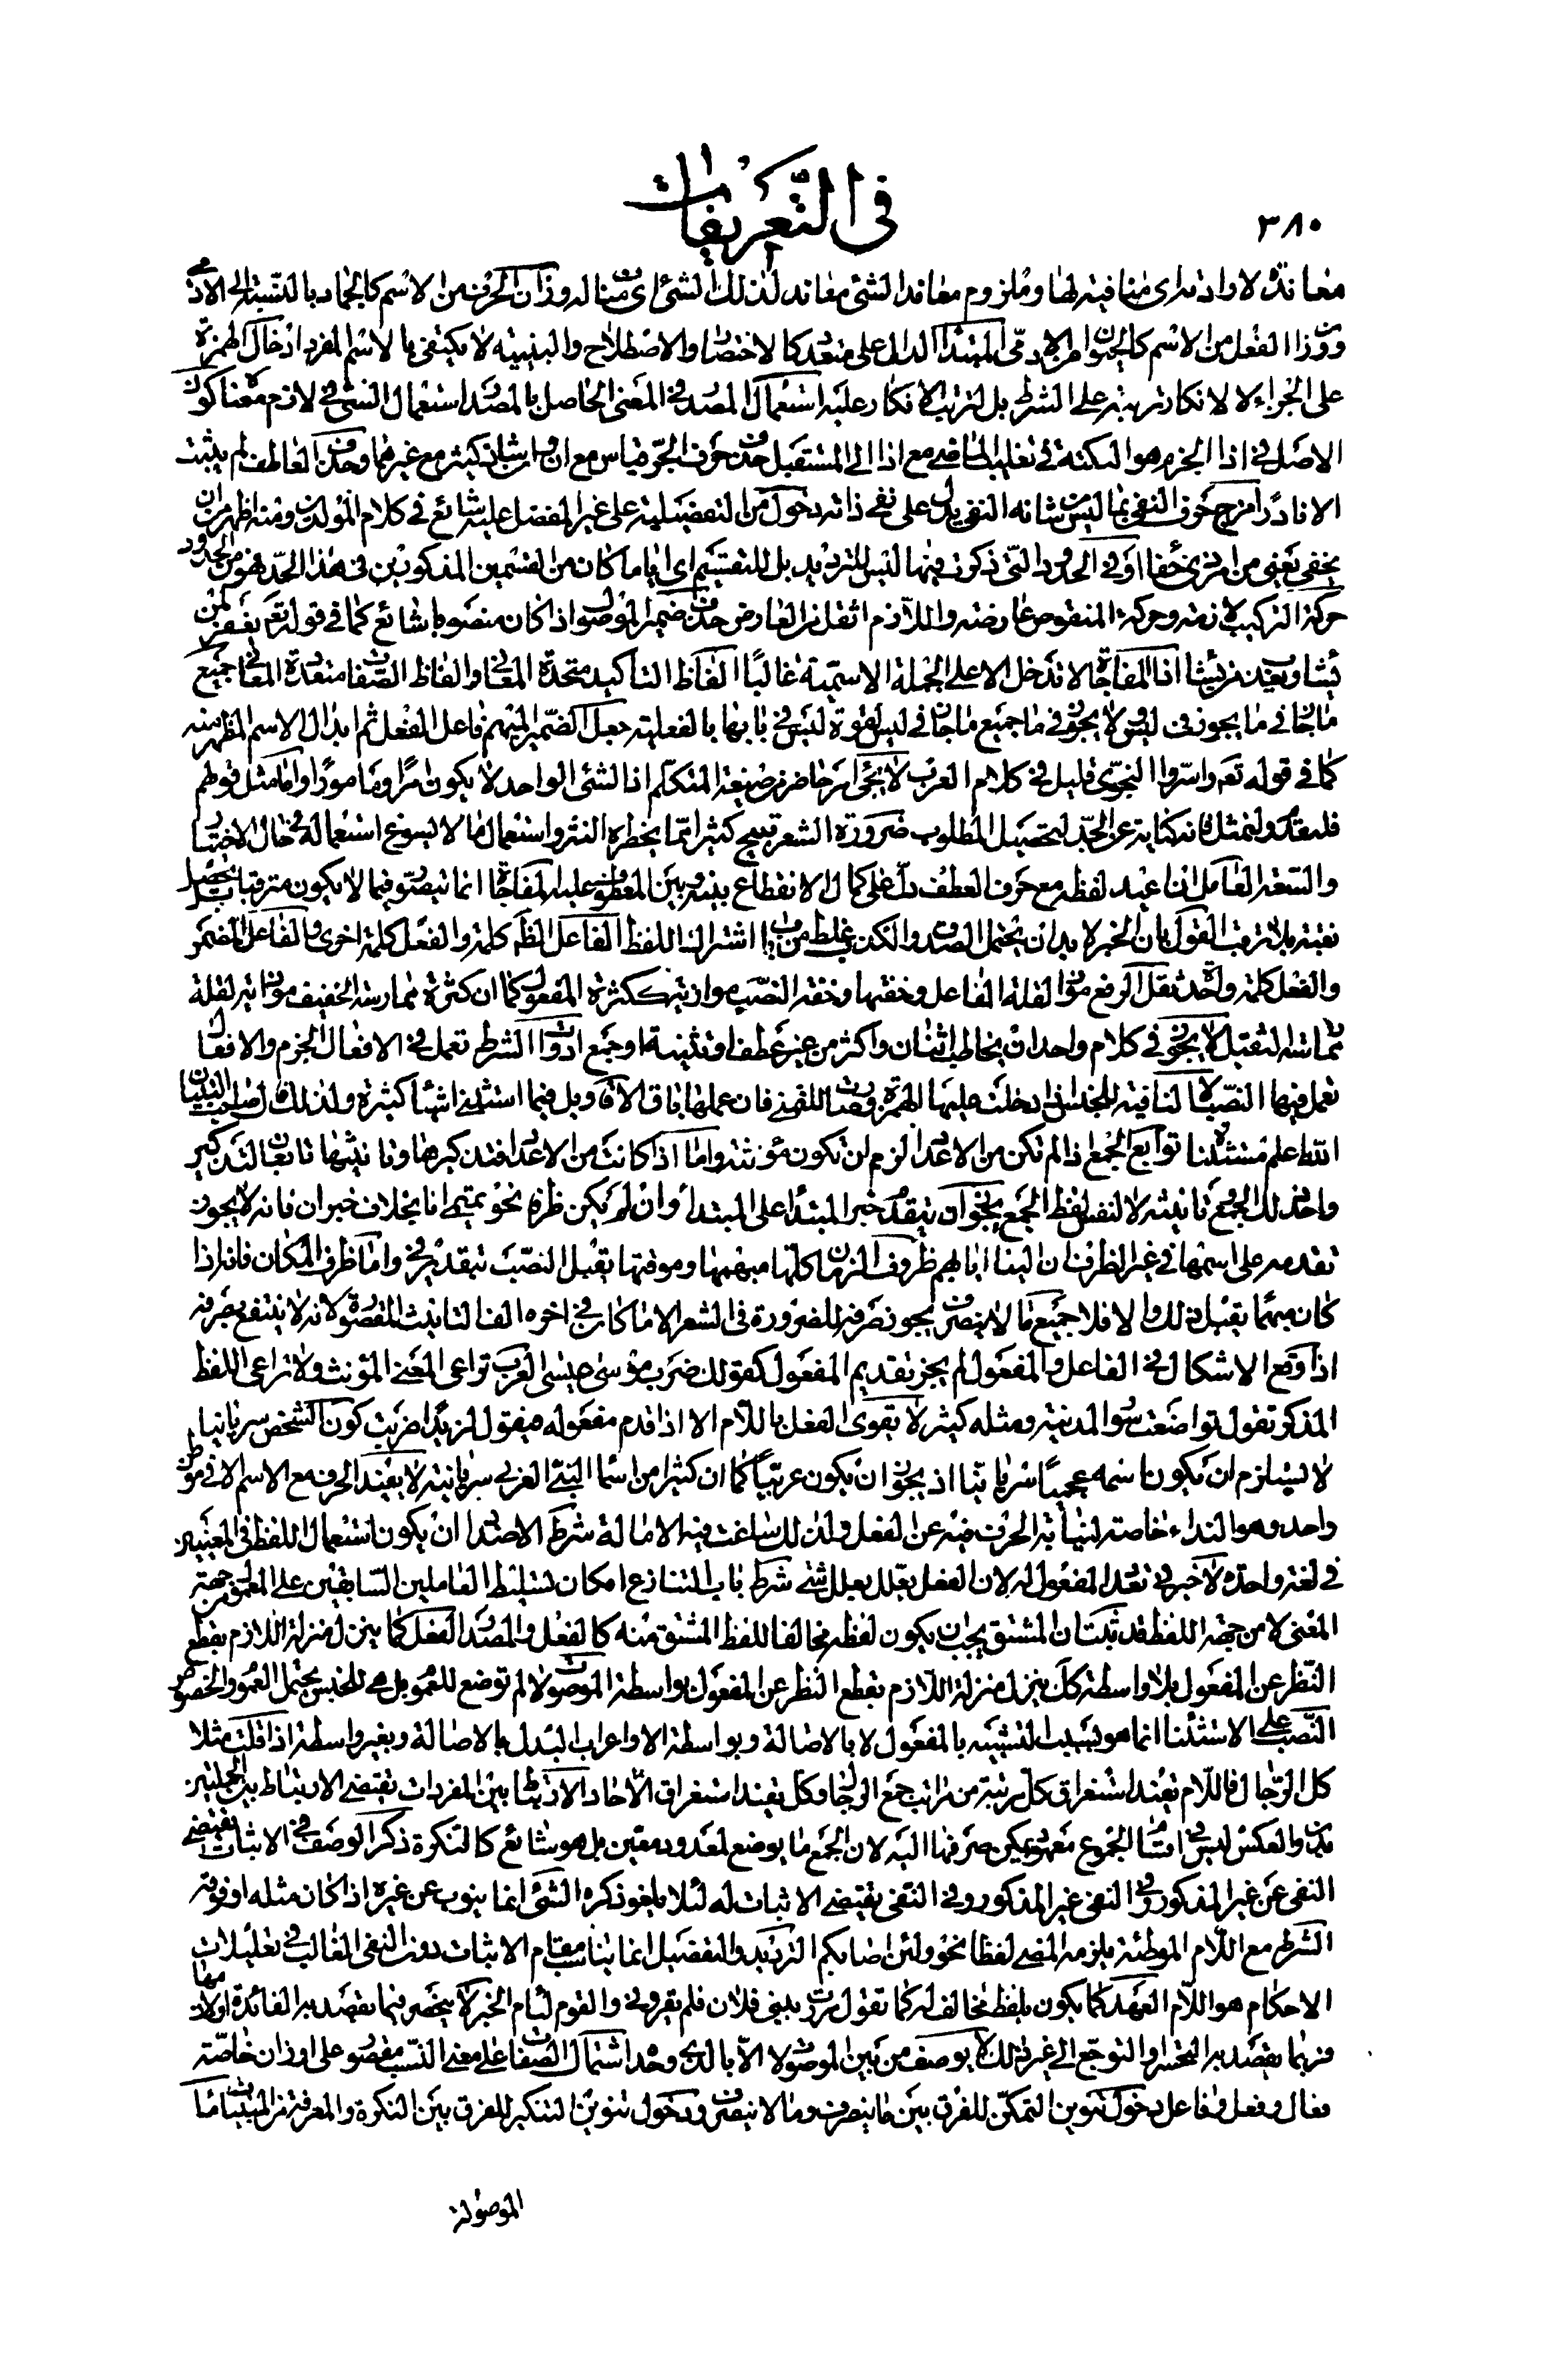 في التعريفات
٣٨٠
معاندة لاوادته اى منافيته لها وملزوم معاند الشئ معاند لذلك الشئ اى مناف له وزان الحرف من الاسم كالجماد بالنسبة الى الآدمي
ووزان الفعل من الاسم كالحيوان من الآدمى المبتدأ الدال على متعدد كالاختصار والاصطلاح والبينية لا يكتفى بالاسم المفرد ادخال الهمزة
على الجزاء لا لانكار ترتبه على الشرط بل لترتب الانكار عليه استعمال المصدر في المعنى الحاصل بالمصدر استعمال الشئ في لازم معناه كون
الاصل في اذا الجزم هو النكتة في تغليب الماضى مع اذا الى المستقبل حذف حرف الجر قياس مع ان وان شاذ كثير مع غيرهما وحذف العاطف لم يثبت
الا نادرا حرف النفى بما ليس من شانه النفى يدل على نفى ذاته دخول من التفضيلية على غير المفضل عليه شائع في كلام المولدين ومنه اظهر من ان
يخفى يعنى من امر ذى خفاء او في الحدود التى ذكرت فيها ليس للترديد بل للتقسيم اى ايا ما كان من القسمين المذكورين فى هذا الحد فهو من الحدود
حركة التركيب لازمة وحركة المنقوص عارضة واللازم اثقل من العارض حذف ضمير الموصول اذا كان منصوبا شائع كما في قوله تع يغفر لمن
يشاء ويعذب من يشاء اذا المفاجاة لا تدخل الا على الجملة الاسمية غالبا الفاظ التأكيد متحدة المعانى والفاظ الصفات متعددة المعانى جميع
ما جاز في ما يجوز فى ليس ولا يجوز في ما جميع ما جاز في ليس لقوة ليس في بابها بالفعلية جعل الضمير المبهم فاعل الفعل ثم ابدال الاسم المظهر منه
كما في قوله تع واسروا النجوى قليل في كلام العرب لا يجئ امر حاضر من صيغة المتكلم اذ الشئ الواحد لا يكون آمرا ومامورا واما مثل قولهم
فلنقدم ولنمثل فانه كناية عن الجد لتحصيل المطلوب ضرورة الشعر تبيح كثيرا مما يحظره النثر واستعمال ما لا يسوغ استعماله في حال الاختيار
والسعة العامل اذا عيد لفظه مع حرف العطف دل على كمال الانقطاع بينه وبين المعطوف عليه المفاجاة انما يتصور فيما لا يكون مترقبا بل يحصل
بغتة بلا ترقب القول بان الخبر لا بد ان يحتمل الصدق والكذب غلط من باب اشتراك اللفظ الفاعل المظهر كلمة والفعل كلمة اخرى والفاعل المضمر
والفعل كلمة واحدة ثقل الرفع موازن لقلة الفاعل وخفتها وخفة النصب موازية لكثرة المفعول كما ان كثرة ممارسة الخفيف موازية لقلة
ممارسة الثقيل لا يجوز في كلام واحد ان يخاطب اثنان واكثر من غير عطف او تثنية او جمع ادوات الشرط تعمل في الافعال الجزم والافعال
تعمل فيها النصب لا النافية للجنس اذا دخلت عليها الهمزة وصارت للتمنى فان عملها باق الاقاويل فيما استثنى اشياء كثيرة ولذلك قال صاحب التبيان
الله اعلم مستثناه توابع الجمع اذا لم تكن من الاعداد لزم ان تكون مؤنثة واما اذا كانت من الاعداد فتذكيرها وتانيثها تابعان لتذكير
واحد ذلك الجمع وتانيثه لا لنفس لفظ الجمع يجوز ان يتقدم خبر المبتدأ على المبتدأ وان لم يكن ظرفا نحو تميمى انا بخلاف خبر ان فانه لا يجوز
تقدمه على اسمها في غير الظرف نحو ان الينا ايابهم ظروف الزمان كلها مبهمها وموقتها يقبل النصب بتقدير في واما ظرف المكان فانه اذا
كان مبهما يقبل ذلك والا فلا جميع ما لا ينصرف يجوز صرفه للضرورة فى الشعر الا ما كان في اخره الف التانيث المقصورة لانه لا ينتفع بصرفه
اذا وقع الاشكال في الفاعل والمفعول لم يجز تقديم المفعول كقولك ضرب موسى عيسى العرب تراعى المعنى المؤنث ولا تراعى اللفظ
المذكر تقول تواضعت سور المدينة ومثله كثير لا يقوى الفعل باللام الا اذا قدم مفعوله فيقول لزيد اضربت كون الشخص سريانيا
لا يستلزم ان يكون اسمه عجميا سريانيا اذ يجوز ان يكون عربيا كما ان كثيرا من اسماء النبى العربى سريانية لا يفيد الحرف مع الاسم الا فى موطن
واحد وهو النداء خاصة لنيابة الحرف فيه عن الفعل ولذلك ساغت فيه الامالة شرط الاضداد ان يكون استعمال اللفظ في المعنيين
في لغة واحدة لا خير في تعدد المفعول له لان الفعل يعلل بعلل شتى شرط باب التنازع امكان تسليط العاملين السابقين على المعمول من جهة
المعنى لا من جهة اللفظ قد ثبت ان المشتق يجب ان يكون لفظه مخالفا للفظ المشتق منه كالفعل والمصدر الفعل كما ينزل منزلة اللازم بقطع
النظر عن المفعول بلا واسطة كذلك ينزل منزلة اللازم بقطع النظر عن المفعول بواسطة الموصولات لم توضع للعموم بل هى للجنس يحتمل العموم والخصوص
النصب على الاستثناء انما هو بسبب التشبيه بالمفعول لا بالاصالة وبواسطة الا واعراب البدل بالاصالة وبغير واسطة اذا قلت مثلا
كل الرجال فاللام يفيد استغراق كل مرتبة من مراتب جمع الرجال وكل يفيد استغراق الآحاد الارتباط بين المفردات يقتضى الارتباط بين الجملتين
بدون العكس ليس في اقسام الجموع معهود يمكن صرفها اليه لان الجمع ما يوضع لمعدود معين بل هو شائع كالنكرة ذكر الوصف في الاثبات يقتضى
النفى عن غير المذكور وفى النفى عن غير المذكور وفى النفى يقتضى الاثبات له لئلا يلغو ذكره الشئ انما ينوب عن غيره اذا كان مثله او فوقه
الشرط مع اللام الموطئة يلزمه المضى لفظا نحو ولئن اصابكم الترديد والتفصيل انما يناسب مقام الاثبات دون النفى الغالب في تعليلات
الاحكام هو اللام العهد كما يكون بلفظ مخالف له كما تقول مررت ببنى فلان فلم يقرونى والقوم لئام الخبر لا ينحصر فيما يقصد به الفائدة او لازمها
فربما يقصد به التحسر والتوجع الى غير ذلك لا يوصف من بين الموصولات الا بالذى وحده اشتمال الصفات على معنى النسب مقصور على اوزان خاصة
فعال وفعل وفاعل دخول تنوين التمكن للفرق بين ما ينصرف وما لا ينصرف ودخول تنوين التنكير للفرق بين النكرة والمعرفة من المبنيات اما
الموصولة